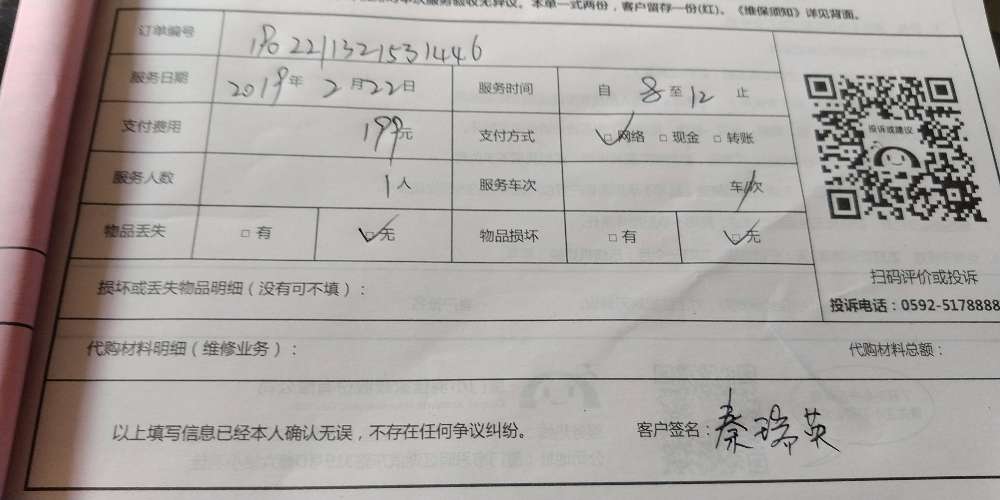 单次服务验收无异议。本单一式两份，客户留存一份(红)。《维保须知》详见背面。
订单编号 1902211321531446
服务日期 2019年 2月22日 服务时间 自 8 至 12 止
支付费用 199元 支付方式 □网络 □现金 □转账
投诉或建议
服务人数 1人 服务车次 车/次
物品丢失 □有 □无 物品损坏 □有 □无
扫码评价或投诉
损坏或丢失物品明细（没有可不填）： 投诉电话：0592-5178888
代购材料明细（维修业务）： 代购材料总额：
以上填写信息已经本人确认无误，不存在任何争议纠纷。 客户签名：秦瑞英